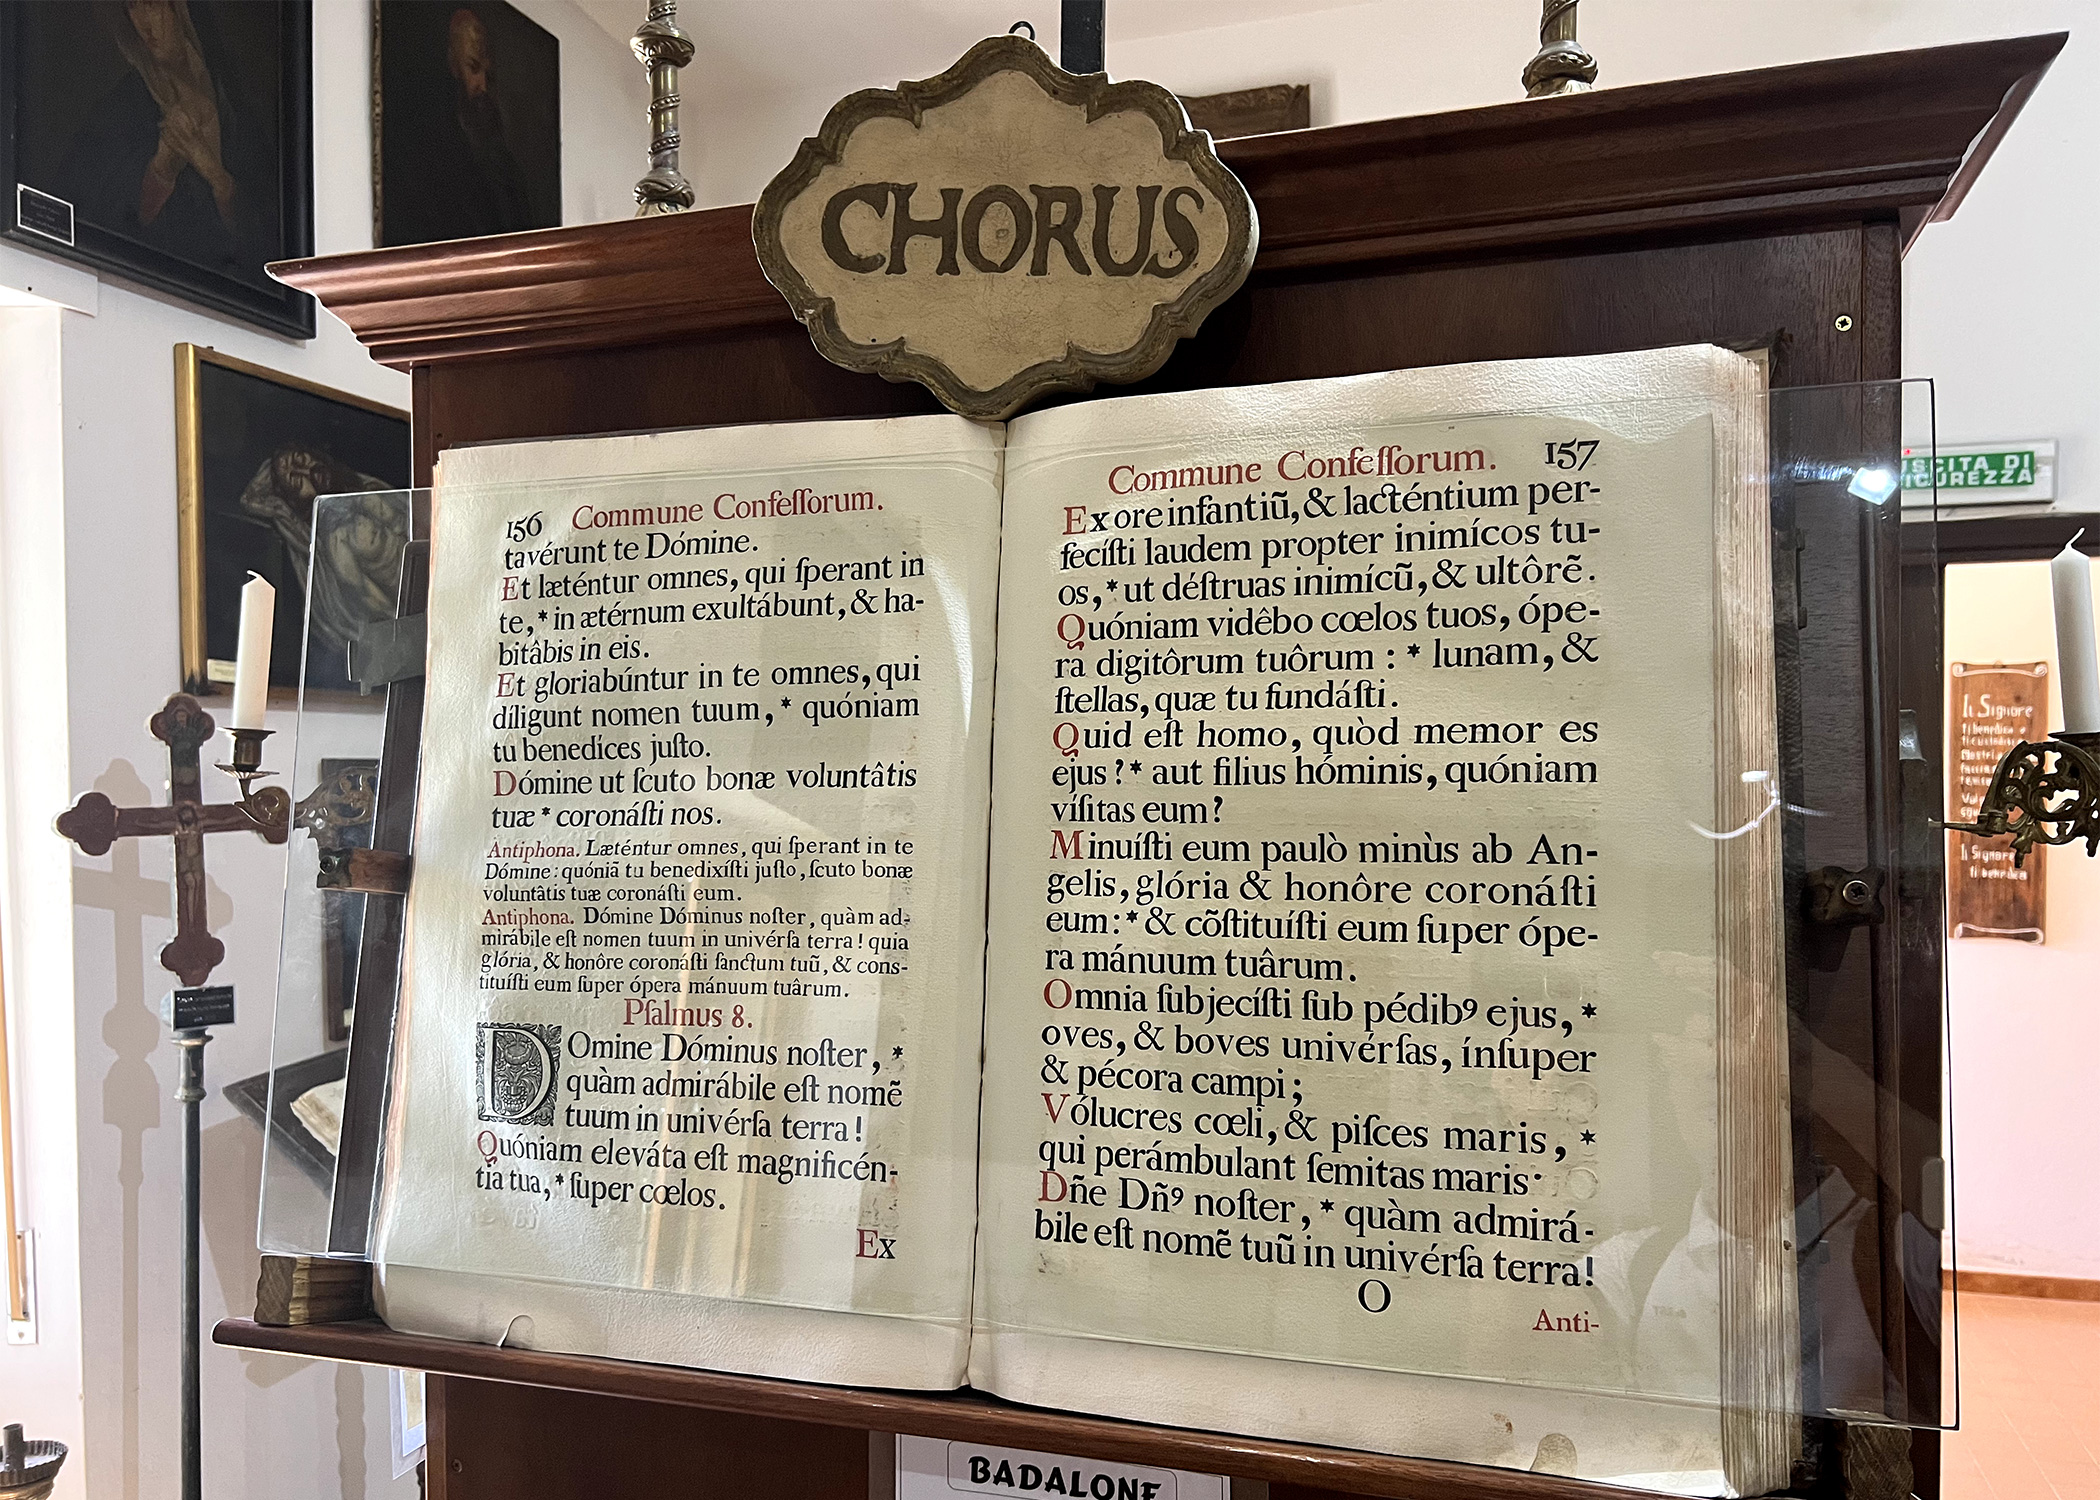 CHORUS
156 Commune Confeſſorum.
tavérunt te Dómine.
Et læténtur omnes, qui ſperant in
te, * in ætérnum exultábunt, & ha-
bitâbis in eis.
Et gloriabúntur in te omnes, qui
díligunt nomen tuum, * quóniam
tu benedíces juſto.
Dómine ut ſcuto bonæ voluntâtis
tuæ * coronáſti nos.
Antiphona. Læténtur omnes, qui ſperant in te
Dómine: quóniã tu benedixíſti juſto, ſcuto bonæ
voluntâtis tuæ coronáſti eum.
Antiphona. Dómine Dóminus noſter, quàm ad-
mirábile eſt nomen tuum in univérſa terra! quia
glória, & honôre coronáſti ſanctum tuũ, & cons-
tituíſti eum ſuper ópera mánuum tuârum.
Pſalmus 8.
DOmine Dóminus noſter, *
quàm admirábile eſt nomẽ
tuum in univérſa terra!
Quóniam eleváta eſt magnificén-
tia tua, * ſuper cœlos.
Ex
Commune Confeſſorum. 157
Ex ore infantiũ, & lacténtium per-
fecíſti laudem propter inimícos tu-
os, * ut déſtruas inimícũ, & ultôrẽ.
Quóniam vidêbo cœlos tuos, ópe-
ra digitôrum tuôrum : * lunam, &
ſtellas, quæ tu fundáſti.
Quid eſt homo, quòd memor es
ejus? * aut filius hóminis, quóniam
víſitas eum?
Minuíſti eum paulò minùs ab An-
gelis, glória & honôre coronáſti
eum: * & cõſtituíſti eum ſuper ópe-
ra mánuum tuârum.
Omnia ſubjecíſti ſub pédibꝰ ejus, *
oves, & boves univérſas, ínſuper
& pécora campi;
Vólucres cœli, & piſces maris, *
qui perámbulant ſemitas maris·
Dñe Dñꝰ noſter, * quàm admirá-
bile eſt nomẽ tuũ in univérſa terra!
O
Anti-
BADALONE
USCITA DI
SICUREZZA
Il Signore
ti benedica e
ti custodisca
Il Signore
ti benedica